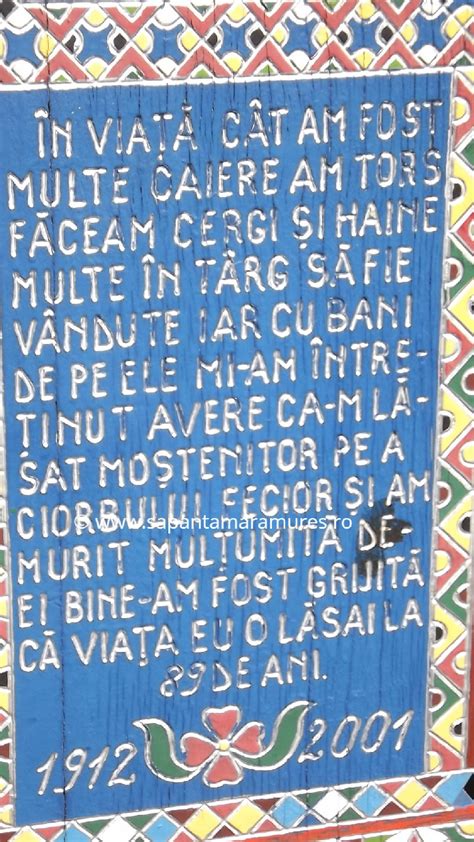 ÎN VIAȚĂ CÂT AM FOST
MULTE CAIERE AM TORS
FĂCEAM CERGI ȘI HAINE
MULTE ÎN TÂRG SĂ FIE
VÂNDUTE IAR CU BANI
DE PE ELE MI-AM ÎNTRE-
ȚINUT AVERE CA-M LĂ-
SAT MOȘTENITOR PE A
CIORBULUI FECIOR ȘI AM
© www.sapantamaramures.ro
MURIT MULȚUMITĂ DE-
EI BINE-AM FOST GRIJITĂ
CĂ VIAȚA EU O LĂSAI LA
89 DE ANI.
1912 2001